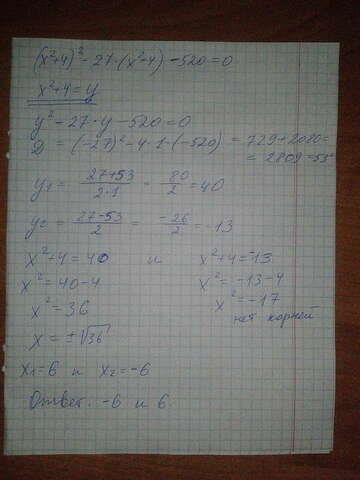 (x²+4)² - 27·(x²-4) - 520=0
x²+4=y
y² - 27·y - 520=0
D = (-27)² - 4·1·(-520) = 729+2080=
= 2809 = 53²
y₁ = (27+53)/(2·1) = 80/2 = 40
y₂ = (27-53)/2 = -26/2 = -13
x²+4=40 и x²+4=-13
x²=40-4 x²=-13-4
x²=36 x²=-17
нет корней
x = ±√36
x₁=6 и x₂=-6
Ответ: -6 и 6.